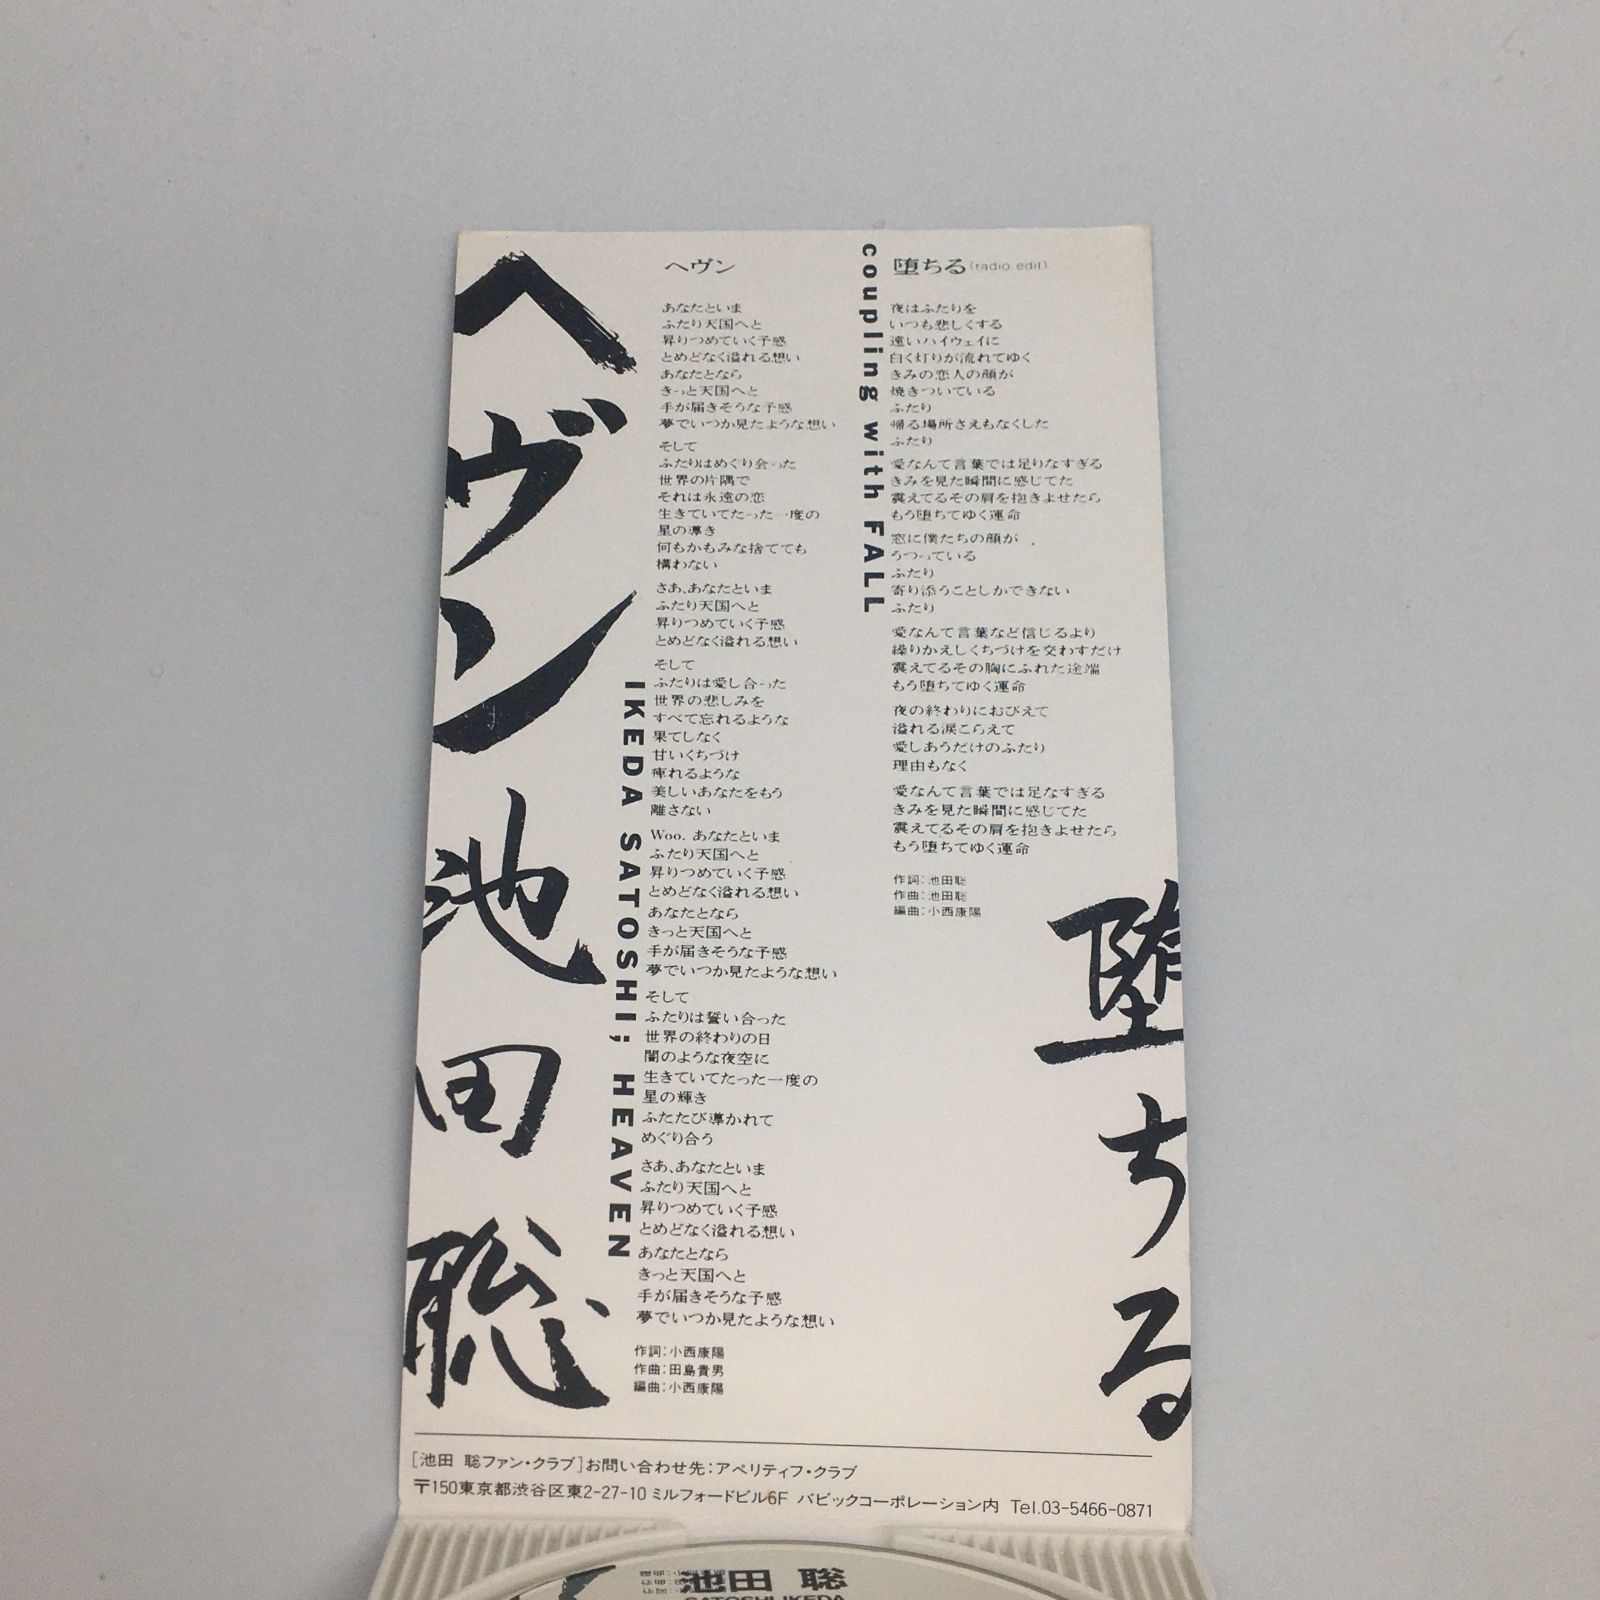 ヘヴン 池田聡
IKEDA SATOSHI; HEAVEN
ヘヴン
あなたといま
ふたり天国へと
昇りつめていく予感
とめどなく溢れる想い
あなたとなら
きっと天国へと
手が届きそうな予感
夢でいつか見たような想い
そして
ふたりはめぐり会った
世界の片隅で
それは永遠の恋
生きていてたった一度の
星の導き
何もかもみな捨てても
構わない
さあ、あなたといま
ふたり天国へと
昇りつめていく予感
とめどなく溢れる想い
そして
ふたりは愛し合った
世界の悲しみを
すべて忘れるような
果てしなく
甘いくちづけ
痺れるような
美しいあなたをもう
離さない
Woo. あなたといま
ふたり天国へと
昇りつめていく予感
とめどなく溢れる想い
あなたとなら
きっと天国へと
手が届きそうな予感
夢でいつか見たような想い
そして
ふたりは誓い合った
世界の終わりの日
闇のような夜空に
生きていてたった一度の
星の輝き
ふたたび導かれて
めぐり合う
さあ、あなたといま
ふたり天国へと
昇りつめていく予感
とめどなく溢れる想い
あなたとなら
きっと天国へと
手が届きそうな予感
夢でいつか見たような想い
作詞：小西康陽
作曲：田島貴男
編曲：小西康陽
coupling with FALL
堕ちる(radio edit)
夜はふたりを
いつも悲しくする
遠いハイウェイに
白く灯りが流れてゆく
きみの恋人の顔が
焼きついている
ふたり
帰る場所さえもなくした
ふたり
愛なんて言葉では足りなすぎる
きみを見た瞬間に感じてた
震えてるその肩を抱きよせたら
もう堕ちてゆく運命
窓に僕たちの顔が
うつっている
ふたり
寄り添うことしかできない
ふたり
愛なんて言葉など信じるより
繰りかえしくちづけを交わすだけ
震えてるその胸にふれた途端
もう堕ちてゆく運命
夜の終わりにおびえて
溢れる涙こらえて
愛しあうだけのふたり
理由もなく
愛なんて言葉では足なすぎる
きみを見た瞬間に感じてた
震えてるその肩を抱きよせたら
もう堕ちてゆく運命
作詞：池田聡
作曲：池田聡
編曲：小西康陽
堕ちる
[池田 聡ファン・クラブ]お問い合わせ先：アペリティフ・クラブ
〒150東京都渋谷区東2-27-10 ミルフォードビル6F バビックコーポレーション内 Tel.03-5466-0871
池田 聡
SATOSHI IKEDA